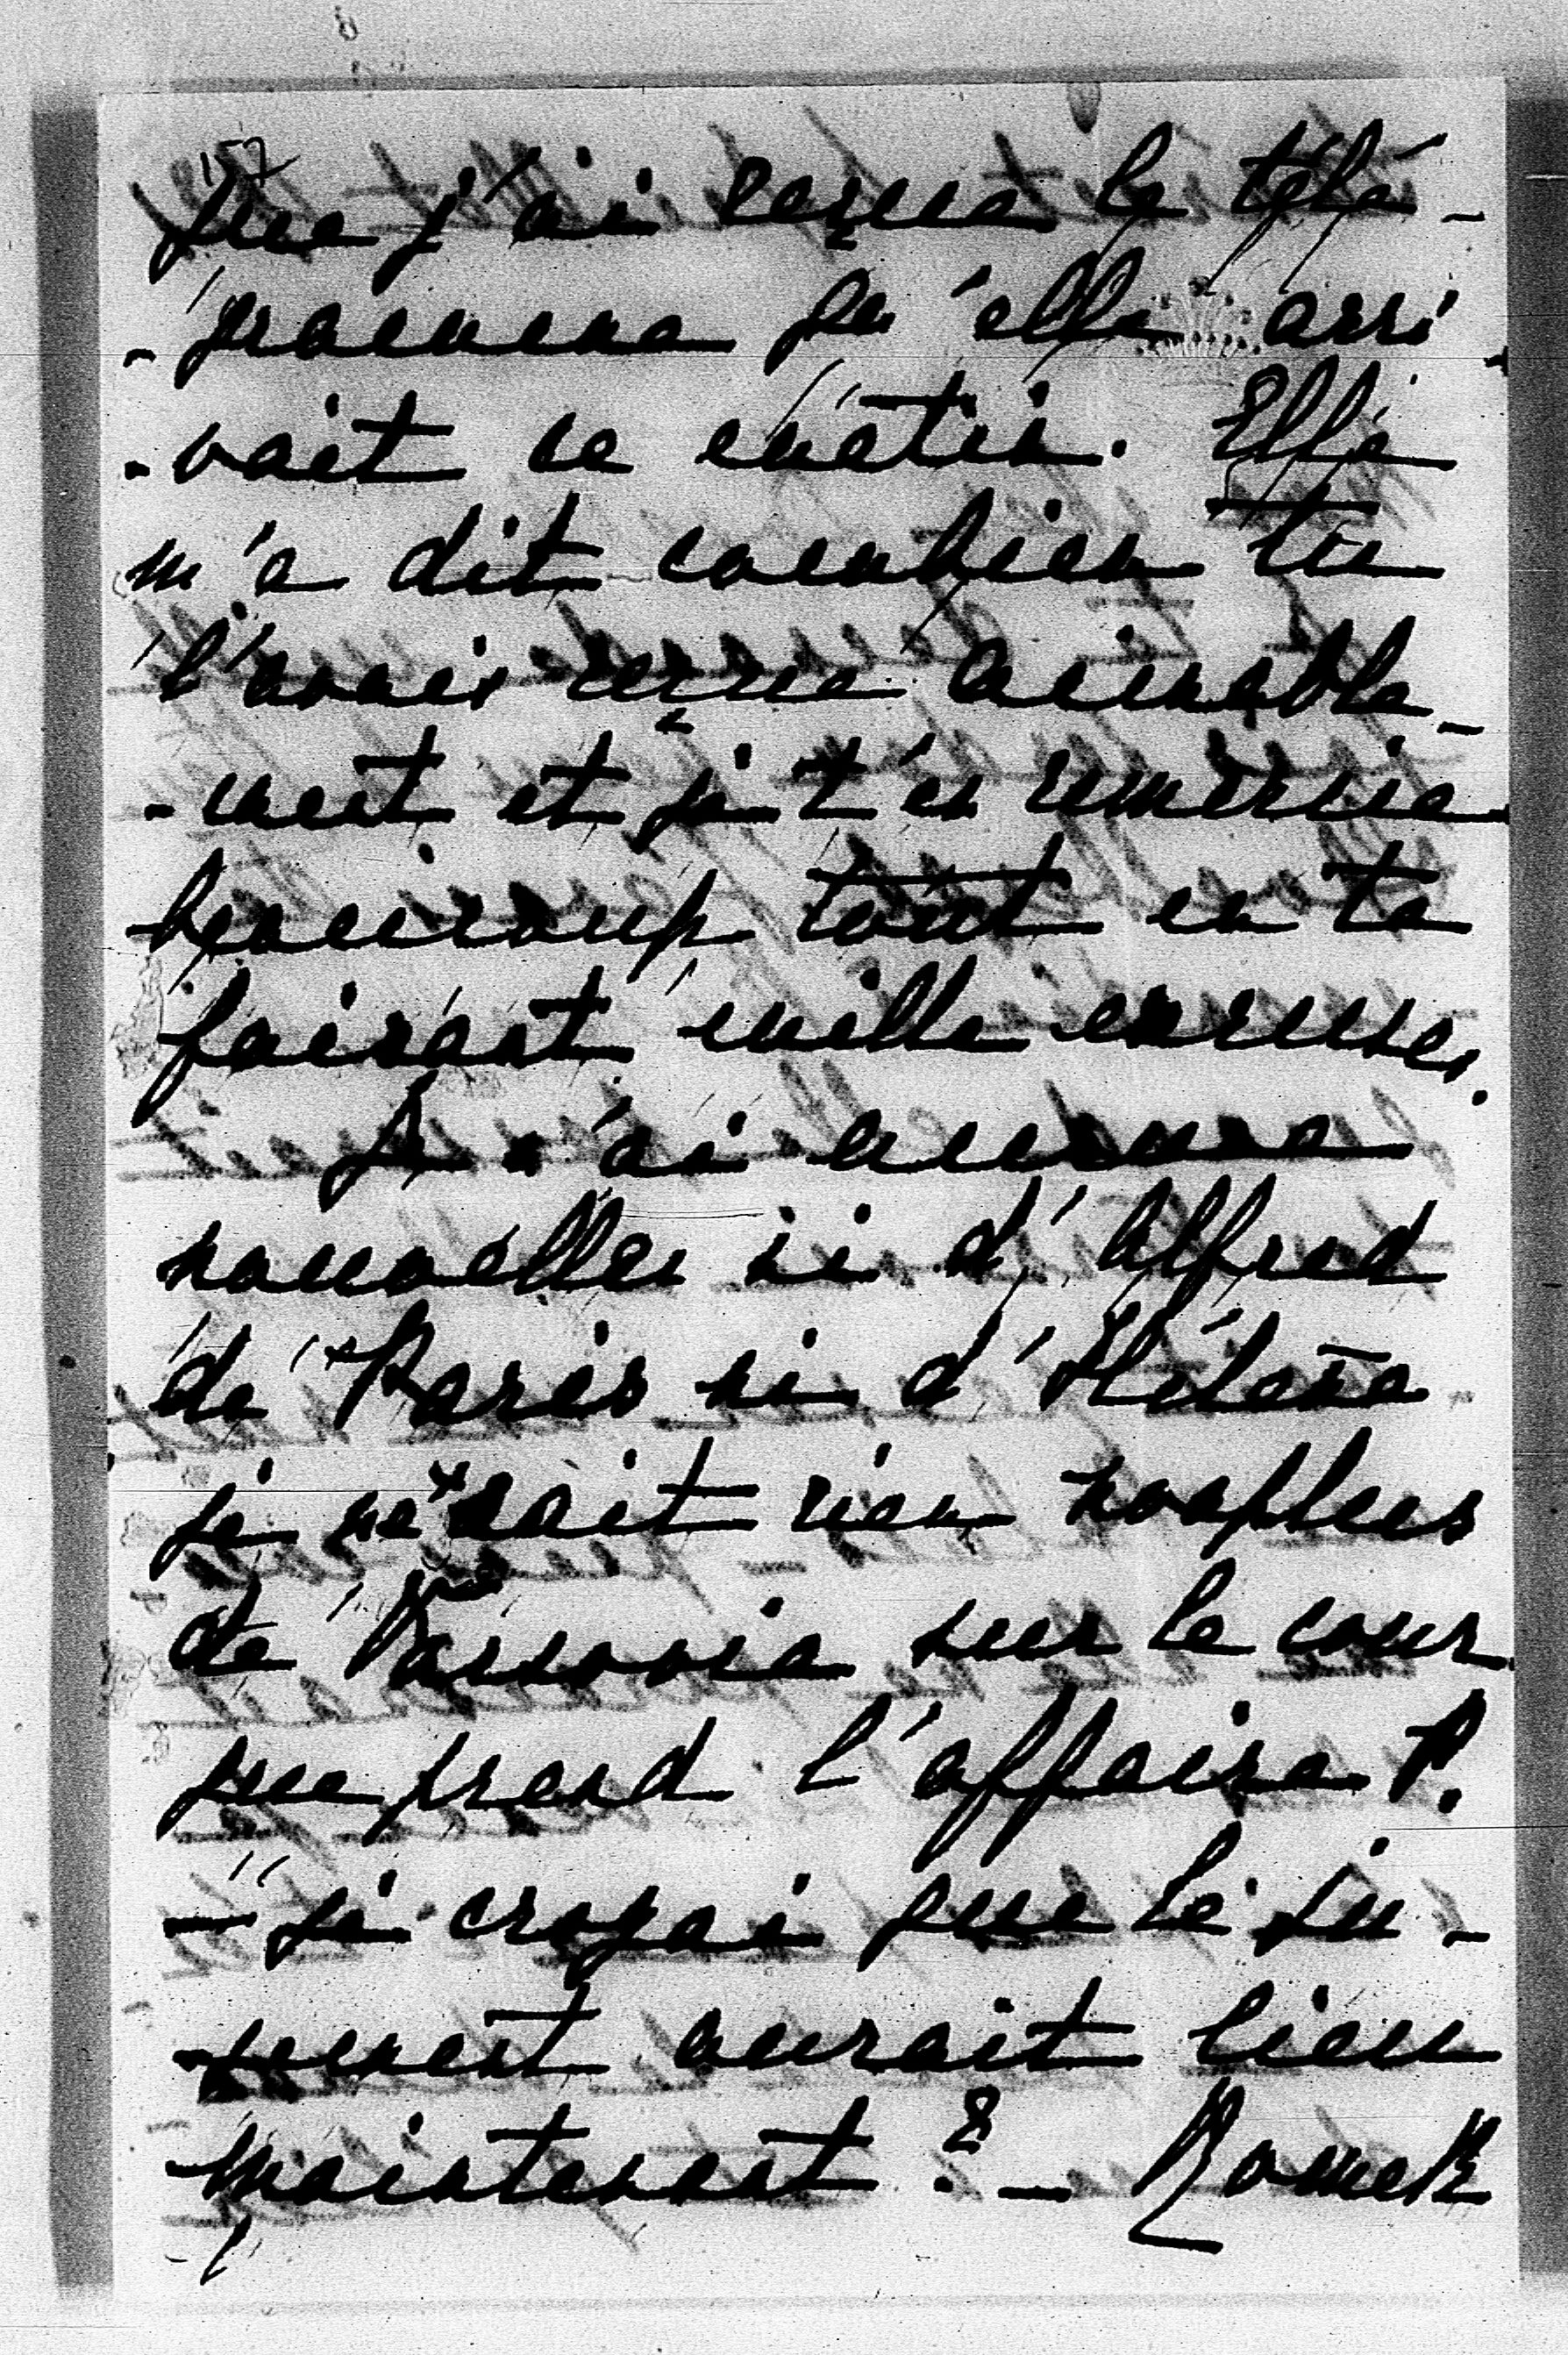 157
que j'ai reçue le télé-
-gramme qu'elle arri-
-vait ce matin. Elle
m'a dit combien tu
l'avais reçue aimable-
-ment et je t'en remercie
beaucoup tout en te
faisant mille excuses.
Je n'ai aucune
nouvelles ni d'Alfred
de Paris ni d'Hélène
je ne sait rien nonplus
de Varsovie sur le cour
que prend l'affaire P.
— je croyai que le ju-
-gement aurait lieu
maintenant ? — Romek